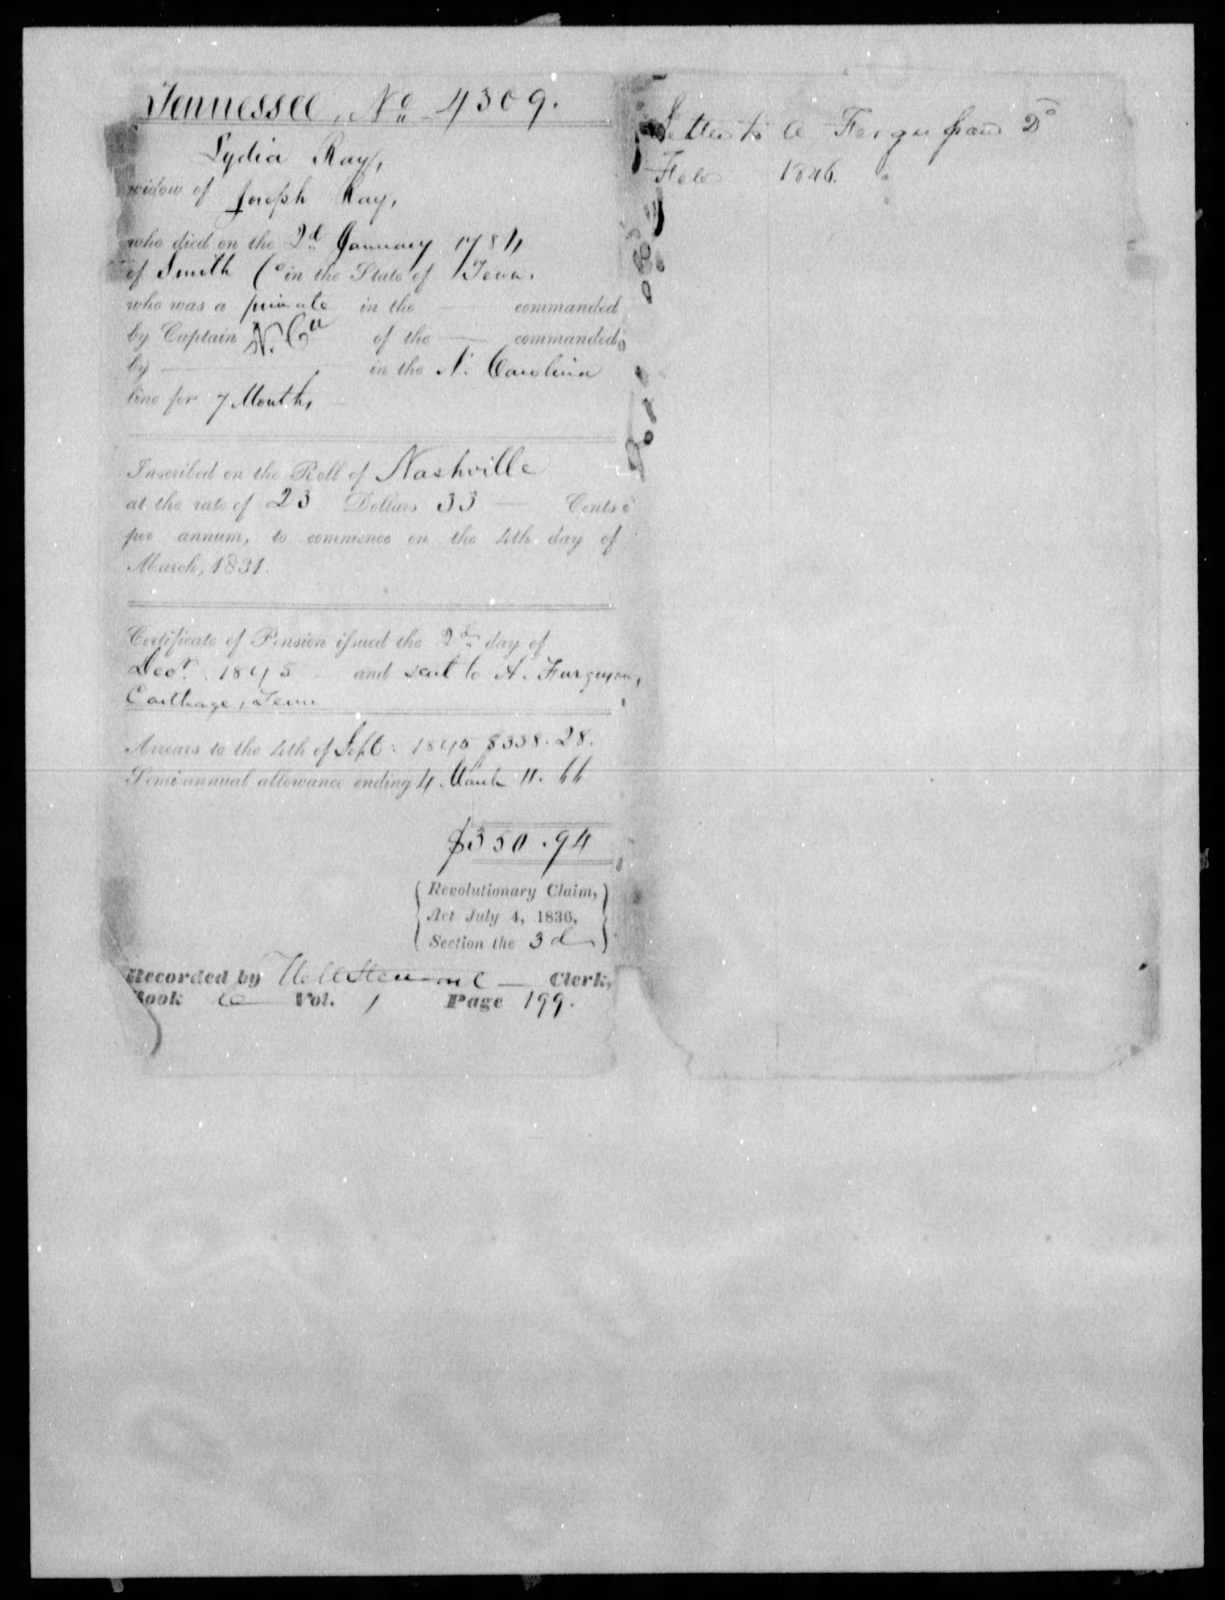 Tennessee, No 4309.
Lydia Ray,
widow of Joseph Ray,
who died on the 2d January 1784
of Smith Co in the State of Tenn.
who was a private in the — commanded
by Captain of the — commanded
by — in the N. Carolina
line for 7 Months,
Inscribed on the Roll of Nashville
at the rate of 23 Dollars 33 — Cents
per annum, to commence on the 4th day of
March, 1831.
Certificate of Pension issued the 2d day of
Decr. 1845 and sent to A. Furguson,
Carthage, Tenn
Arrears to the 4th of Sept: 1845 $338.28.
Semi-annual allowance ending 4 March 11.66
$350.94
Revolutionary Claim,
Act July 4, 1836,
Section the 3d
Recorded by — Clerk,
Book Vol. 1 Page 199.
Letter to A Ferguson
Feb 1846.